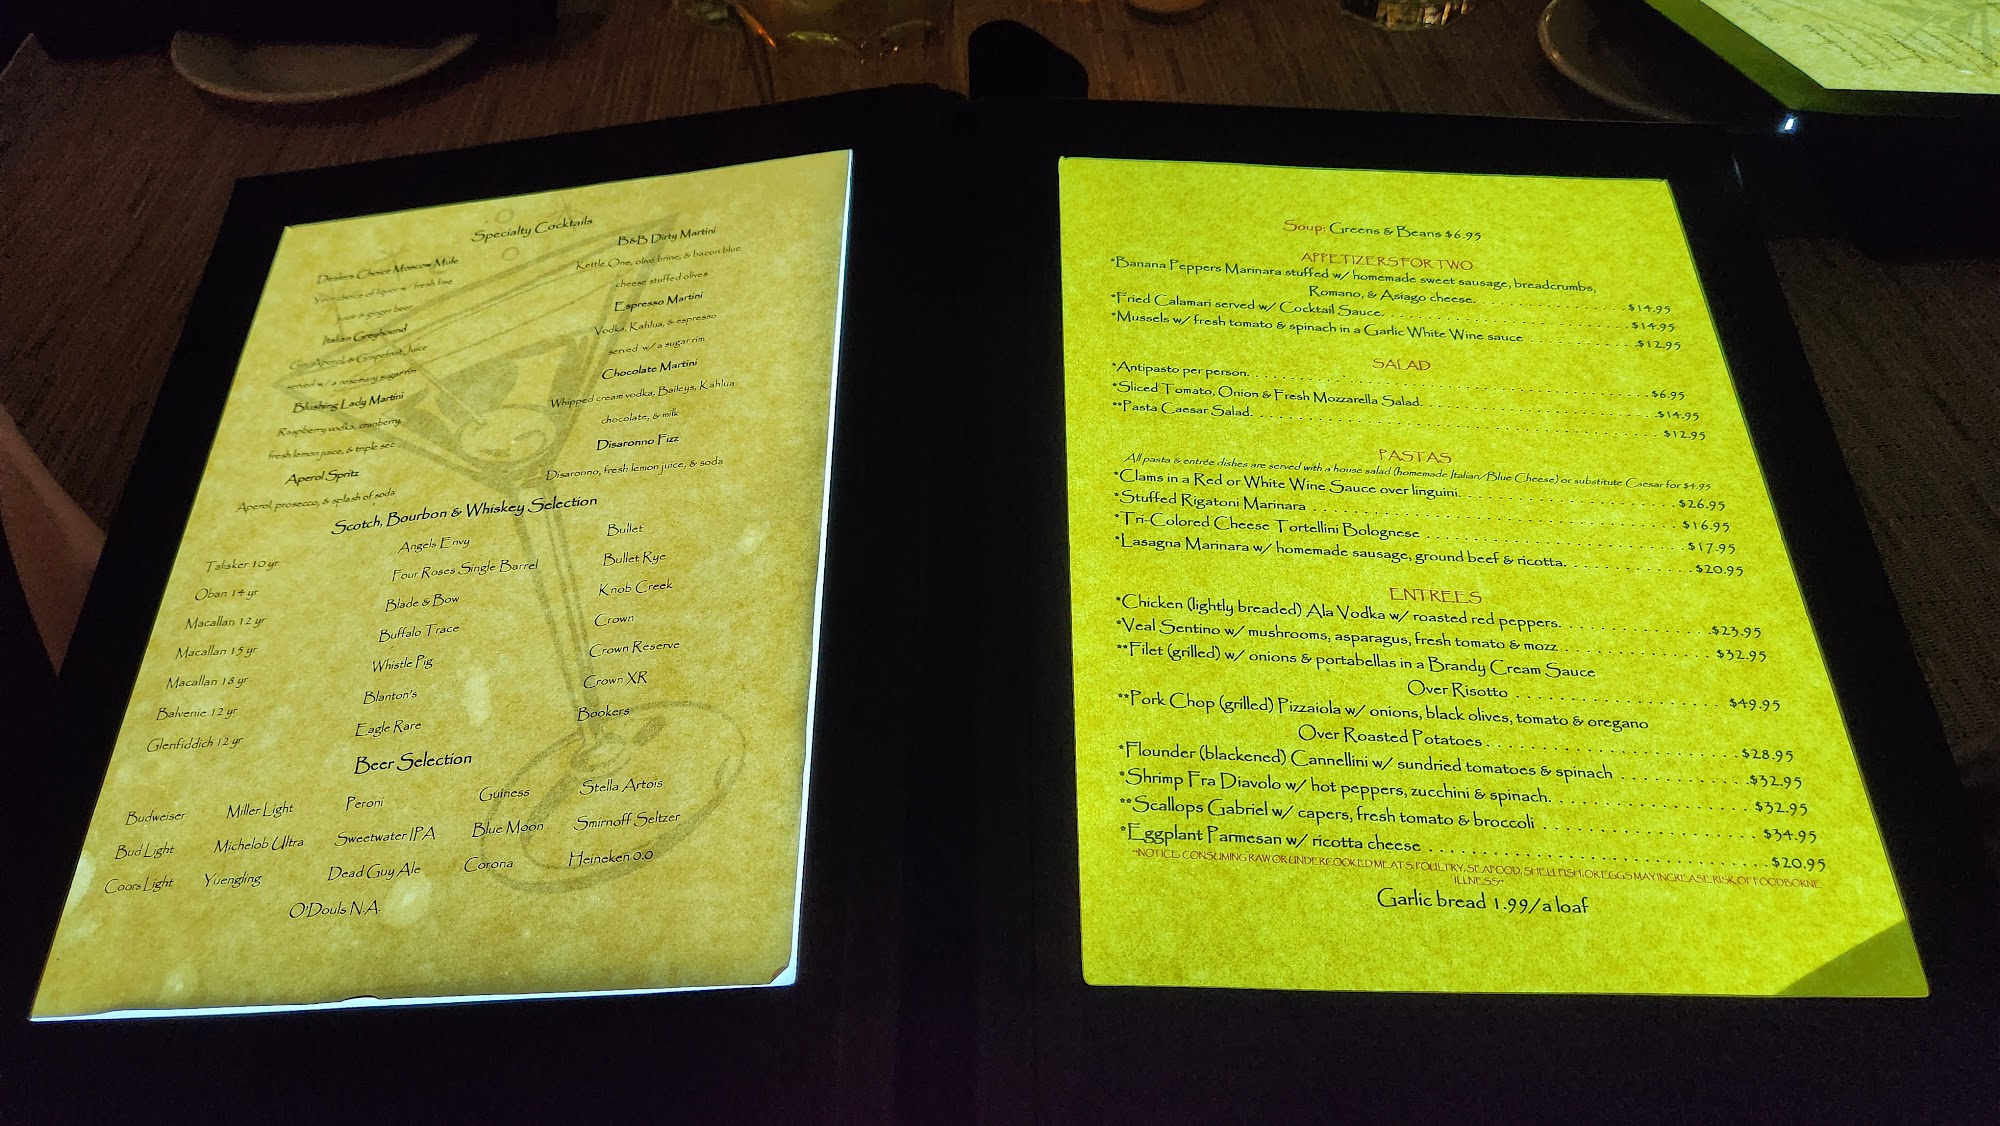 Specialty Cocktails
Dealers Choice Moscow Mule
Your choice of liquor w/ fresh lime
juice & ginger beer
Italian Greyhound
Gin, Aperol, & Grapefruit Juice
served w/ a rosemary sugar rim
Blushing Lady Martini
Raspberry vodka, cranberry,
fresh lemon juice, & triple sec
Aperol Spritz
Aperol, prosecco, & splash of soda
B&B Dirty Martini
Kettle One, olive brine, & bacon blue
cheese stuffed olives
Espresso Martini
Vodka, Kahlua, & espresso
served w/ a sugar rim
Chocolate Martini
Whipped cream vodka, Baileys, Kahlua
chocolate, & milk
Disaronno Fizz
Disaronno, fresh lemon juice, & soda
Scotch, Bourbon & Whiskey Selection
Talisker 10 yr
Oban 14 yr
Macallan 12 yr
Macallan 15 yr
Macallan 18 yr
Balvenie 12 yr
Glenfiddich 12 yr
Angels Envy
Four Roses Single Barrel
Blade & Bow
Buffalo Trace
Whistle Pig
Blanton's
Eagle Rare
Bullet
Bullet Rye
Knob Creek
Crown
Crown Reserve
Crown XR
Bookers
Beer Selection
Budweiser Miller Light Peroni Guiness Stella Artois
Bud Light Michelob Ultra Sweetwater IPA Blue Moon Smirnoff Seltzer
Coors Light Yuengling Dead Guy Ale Corona Heineken 0.0
O'Douls N.A.
Soup: Greens & Beans $6.95
APPETIZERS FOR TWO
*Banana Peppers Marinara stuffed w/ homemade sweet sausage, breadcrumbs,
Romano, & Asiago cheese. $14.95
*Fried Calamari served w/ Cocktail Sauce. $14.95
*Mussels w/ fresh tomato & spinach in a Garlic White Wine sauce $12.95
SALAD
*Antipasto per person. $6.95
*Sliced Tomato, Onion & Fresh Mozzarella Salad. $14.95
**Pasta Caesar Salad. $12.95
PASTAS
All pasta & entrée dishes are served with a house salad (homemade Italian/Blue Cheese) or substitute Caesar for $4.95
*Clams in a Red or White Wine Sauce over linguini. $26.95
*Stuffed Rigatoni Marinara $16.95
*Tri-Colored Cheese Tortellini Bolognese $17.95
*Lasagna Marinara w/ homemade sausage, ground beef & ricotta. $20.95
ENTREES
*Chicken (lightly breaded) Ala Vodka w/ roasted red peppers. $23.95
*Veal Sentino w/ mushrooms, asparagus, fresh tomato & mozz $32.95
**Filet (grilled) w/ onions & portabellas in a Brandy Cream Sauce
Over Risotto $49.95
**Pork Chop (grilled) Pizzaiola w/ onions, black olives, tomato & oregano
Over Roasted Potatoes $28.95
*Flounder (blackened) Cannellini w/ sundried tomatoes & spinach $32.95
*Shrimp Fra Diavolo w/ hot peppers, zucchini & spinach. $32.95
**Scallops Gabriel w/ capers, fresh tomato & broccoli $34.95
*Eggplant Parmesan w/ ricotta cheese $20.95
**NOTICE: CONSUMING RAW OR UNDERCOOKED MEATS, POULTRY, SEAFOOD, SHELLFISH, OR EGGS MAY INCREASE RISK OF FOODBORNE
ILLNESS**
Garlic bread 1.99/a loaf